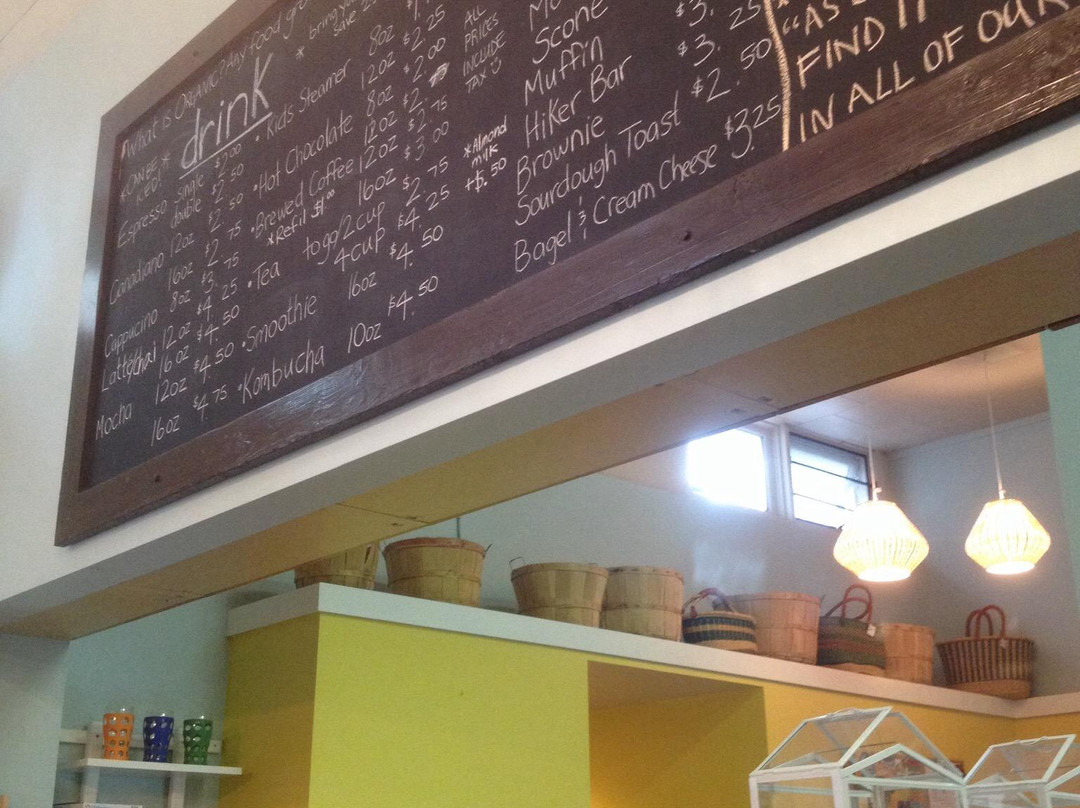 What is ORGANIC? Any food gro
* bring you
save
drink
* CAN BE *
ICED!
Espresso single $2.00
double $2.50
Canadiano 12oz $2.50
16oz $2.75
Cappucino 8oz $3.75
Latte/chai 12oz $4.25
16oz $4.50
Mocha 12oz $4.50
16oz $4.75
• Kids Steamer 8oz
12oz $2.25
• Hot Chocolate 8oz $2.00
12oz
• Brewed Coffee 12oz $2.75
*Refill $1.00 16oz $3.00
• Tea to go/2cup $2.75
4cup $4.25
• Smoothie 16oz $4.50
• Kombucha 10oz $4.50
ALL
PRICES
INCLUDE
TAX
*Almond
milk
+$.50
Scone
Muffin $3.
Hiker Bar $3.25
Brownie
Sourdough Toast $2.50
Bagel & Cream Cheese $3.25
"AS
FIND IT
IN ALL OF OUR